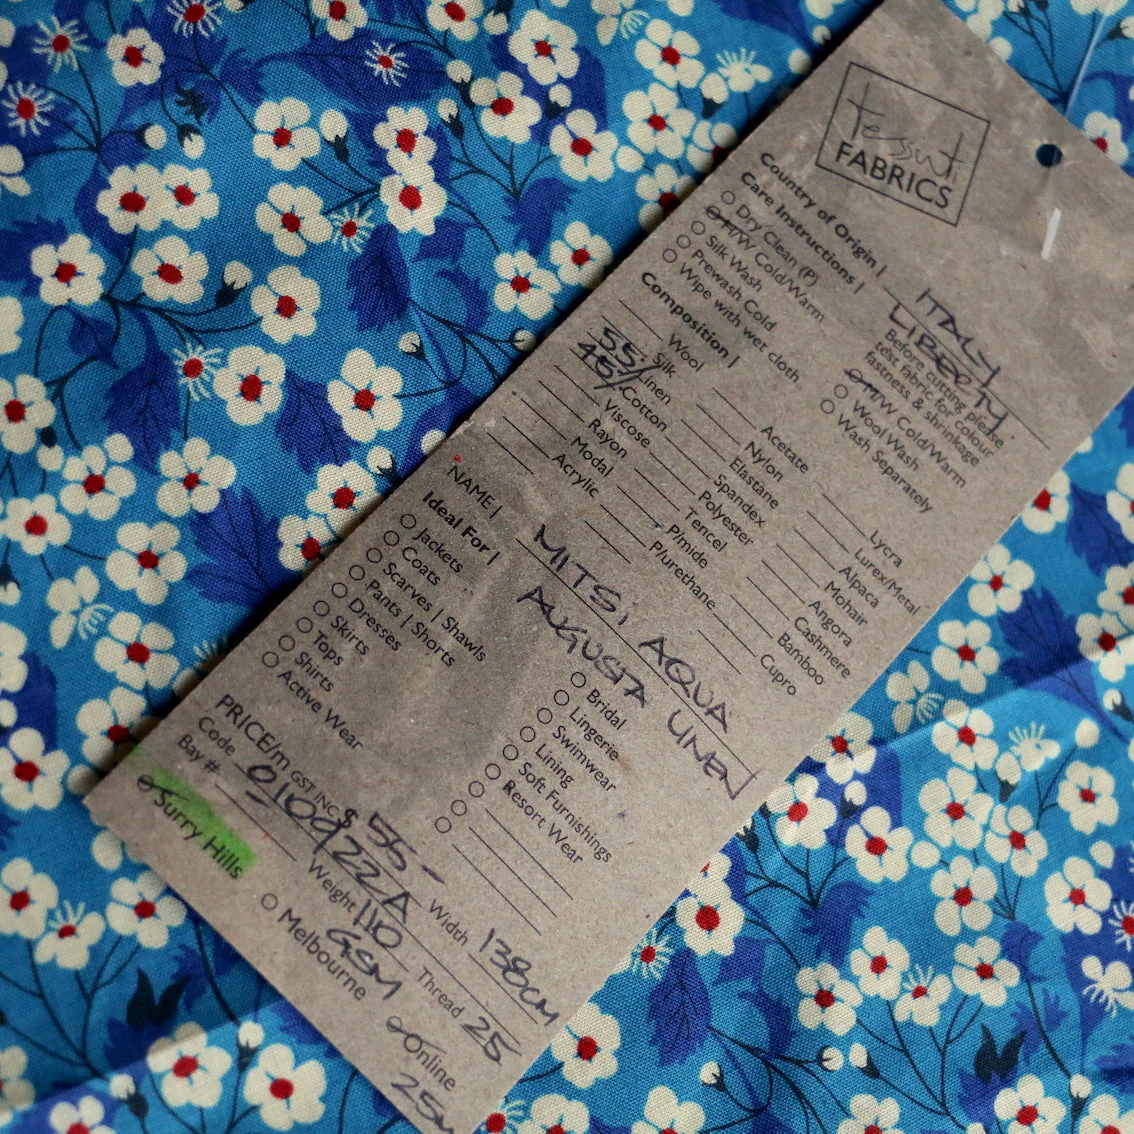 Tessuti
FABRICS
Country of Origin | ITALY
LIBERTY
Care Instructions |
Dry Clean (P)
H/W Cold/Warm
Silk Wash
Prewash Cold
Wipe with wet cloth
Before cutting please
test fabric for colour
fastness & shrinkage
H/W Cold/Warm
Wool Wash
Wash Separately
Composition |
Wool
Silk
55 Linen
45 Cotton
Viscose
Rayon
Modal
Acrylic
Acetate
Nylon
Elastane
Spandex
Polyester
Tencel
P/mide
P/urethane
Lycra
Lurex/Metal
Alpaca
Mohair
Angora
Cashmere
Bamboo
Cupro
NAME | MITSI AQUA
AUGUSTA LINEN
Ideal For |
Jackets
Coats
Scarves | Shawls
Pants | Shorts
Dresses
Skirts
Tops
Shirts
Active Wear
Bridal
Lingerie
Swimwear
Lining
Soft Furnishings
Resort Wear
PRICE/m GST INC $ 55 -
Width 138CM
Code
Weight 110
GSM
Thread 25
Bay #
Surry Hills
Melbourne
Online